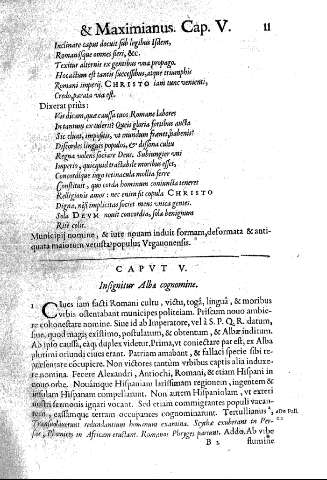 & Maximianus. Cap. V. 11
Inclinare caput docuit sub legibus iisdem,
Romanosque omnes fieri, &c.
Texitur alternis ex gentibus vna propago.
Hoc actum est tantis successibus, atque triumphis
Romani imperij. CHRISTO iam tunc venienti,
Crede, parata via est.
Dixerat priùs:
Vis dicam, quæ caussa tuos Romane labores
In tantum extulerit? Queis gloria fotibus aucta
Sic cluat, impositis, vt mundum frænet, habenis?
Discordes linguis populos, & dissona cultu
Regna volens sociare Deus. Subiungier vni
Imperio, quicquid tractabile moribus esset,
Concordique iugo retinacula mollia ferre
Constituit, quo corda hominum coniuncta teneret
Religionis amor: nec enim fit copula CHRISTO
Digna, nisi implicitas societ mens vnica gentes.
Sola DEVM nouit concordia, sola benignum
Ritè colit.
Municipij nomine, & iure nouam induit formam, deformata & anti-
quata maiorum vetusta populus Vrgauonensis.
CAPVT V.
Insignitur Alba cognomine.
1 CIues iam facti Romani cultu, victu, togâ, linguâ, & moribus
vrbis ostentabant municipes politeiam. Priscum nouo ambie-
re cohonestare nomine. Siue id ab Imperatore, vel à S. P. Q. R. datum,
siue, quod magis existimo, postulatum, & obtentum, & Albæ inditum.
Ab ipso caussa, eáq; duplex videtur. Prima, vt coniectare par est, ex Alba
plurimi oriundi ciues erant. Patriam amabant, & fallaci specie sibi re-
parientare occupere. Non victores tantùm vrbibus captis alia induxe-
re nomina. Fecere Alexandri, Antiochi, Romani, & etiam Hispani in
nouo orbe. Nouámque Hispaniam latissimam regionem, ingentem &
insulam Hispanam compellarunt. Non autem Hispaniolam, vt exteri
nostri sermonis ignari vocant. Sed etiam commigrantes populi vacan-
tem, easdémque terram occupantes cognominarunt. Tertullianus,
Transuolauerunt redundantium hominum examina. Scythæ exuberant in Per-
sas, Phœnices in Africam eructant. Romanos Phryges pariunt. Addo. Ab vrbe
B 2 flumine